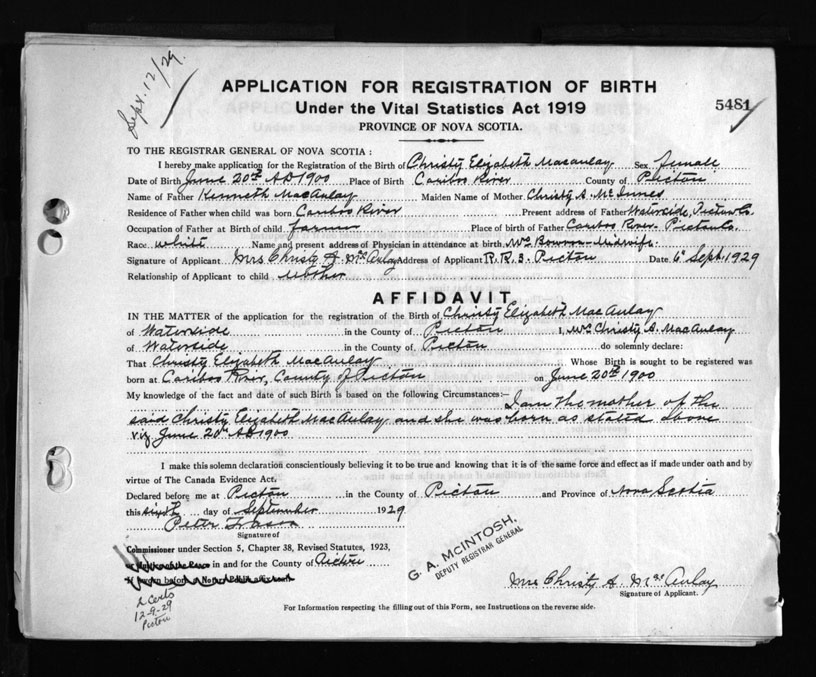 Sept. 12/29.
APPLICATION FOR REGISTRATION OF BIRTH
Under the Vital Statistics Act 1919
5481
PROVINCE OF NOVA SCOTIA.
TO THE REGISTRAR GENERAL OF NOVA SCOTIA:
I hereby make application for the Registration of the Birth of Christy Elizabeth Macaulay Sex female
Date of Birth June 20th AD 1900 Place of Birth Cariboo River County of Pictou
Name of Father Kenneth MacAulay Maiden Name of Mother Christy A. McInnes
Residence of Father when child was born Cariboo River Present address of Father Waterside, Pictou Co.
Occupation of Father at Birth of child farmer Place of birth of Father Cariboo River Pictou Co.
Race white Name and present address of Physician in attendance at birth, Mrs Midwife.
Signature of Applicant Mrs Christy A. McAulay Address of Applicant R.R. 3. Pictou Date 6th Sept. 1929
Relationship of Applicant to child Mother
AFFIDAVIT
IN THE MATTER of the application for the registration of the Birth of Christy Elizabeth MacAulay
of Waterside in the County of Pictou I, Mrs Christy A. MacAulay
of Waterside in the County of Pictou do solemnly declare:
That Christy Elizabeth MacAulay Whose Birth is sought to be registered was
born at Cariboo River, County of Pictou on June 20th 1900
My knowledge of the fact and date of such Birth is based on the following Circumstances:— I am the mother of the
said Christy Elizabeth MacAulay and she was born as stated above
viz June 20th AD 1900
I make this solemn declaration conscientiously believing it to be true and knowing that it is of the same force and effect as if made under oath and by
virtue of The Canada Evidence Act.
Declared before me at Pictou in the County of Pictou and Province of Nova Scotia
this sixth day of September 1929
Peter
Signature of
Commissioner under Section 5, Chapter 38, Revised Statutes, 1923,
in and for the County of Pictou
G. A. McINTOSH,
DEPUTY REGISTRAR GENERAL
Mrs Christy A. McAulay
Signature of Applicant.
2 Certs
12-9-29
Pictou
For Information respecting the filling out of this Form, see Instructions on the reverse side.